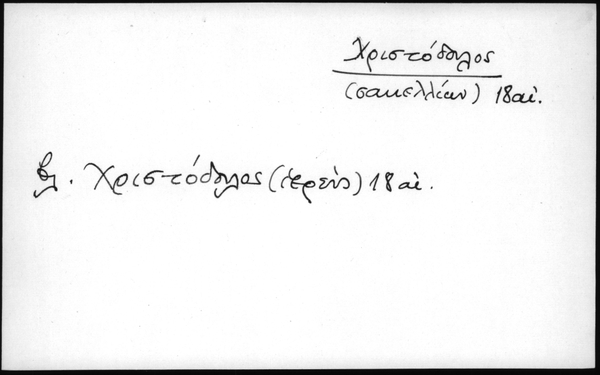 Χριστόδουλος
(σακελλίων) 18 αἰ.
βλ. Χριστόδουλος (ἱερεὺς) 18 αἰ.